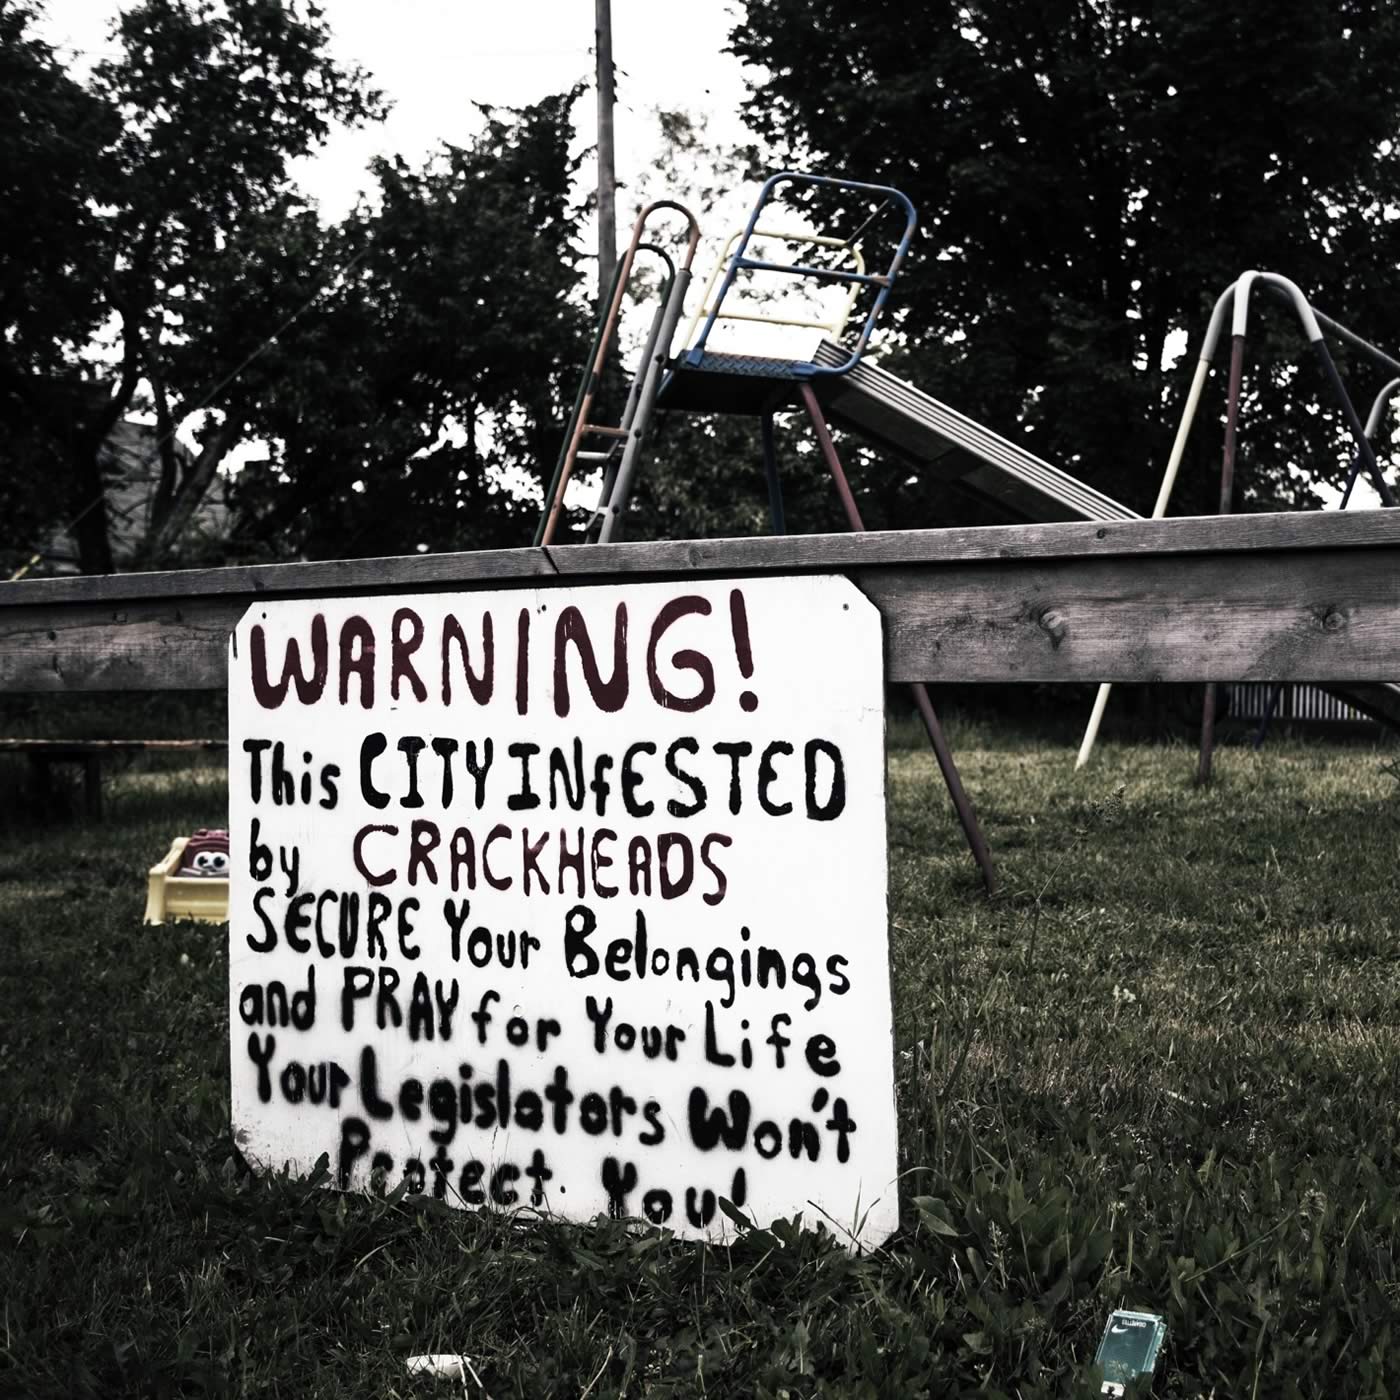 WARNING!
This CITY INfESTED
by CRACKHEADS
SECURE Your Belongings
and PRAY for Your Life
Your Legislators Won't
Protect You!